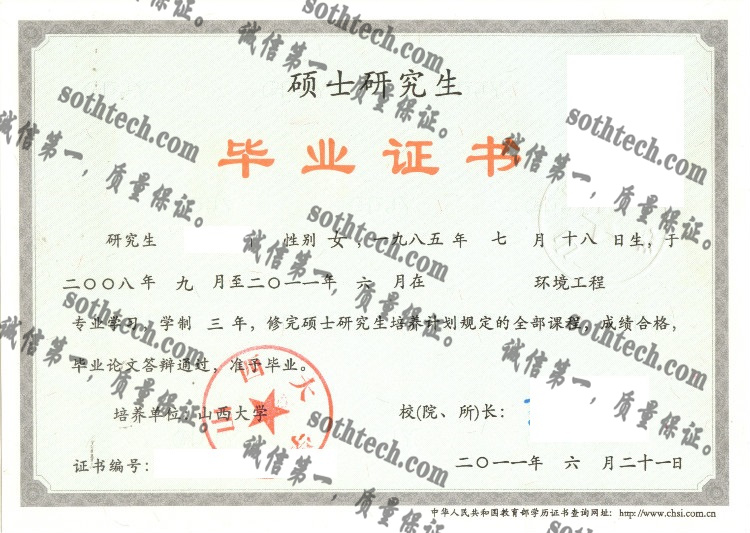 硕士研究生
毕业证书
研究生 性别 女，一九八五 年 七 月 十八 日生，于
二〇〇八年 九 月至二〇一一年 六 月在 环境工程
专业学习，学制 三 年，修完硕士研究生培养计划规定的全部课程，成绩合格，
毕业论文答辩通过，准予毕业。
培养单位：山西大学
校(院、所)长：
证书编号：
二〇一一年 六 月二十一日
中华人民共和国教育部学历证书查询网址：http://www.chsi.com.cn
山西大
sothtech.com
诚信第一，质量保证。
sothtech.com
诚信第一，质量保证。
sothtech.com
诚信第一，质量保证。
sothtech.com
诚信第一，质量保证。
sothtech.com
诚信第一，质量保证。
sothtech.com
诚信第一，质量保证。
sothtech.com
诚信第一，质量保证。
sothtech.com
诚信第一，质量保证。